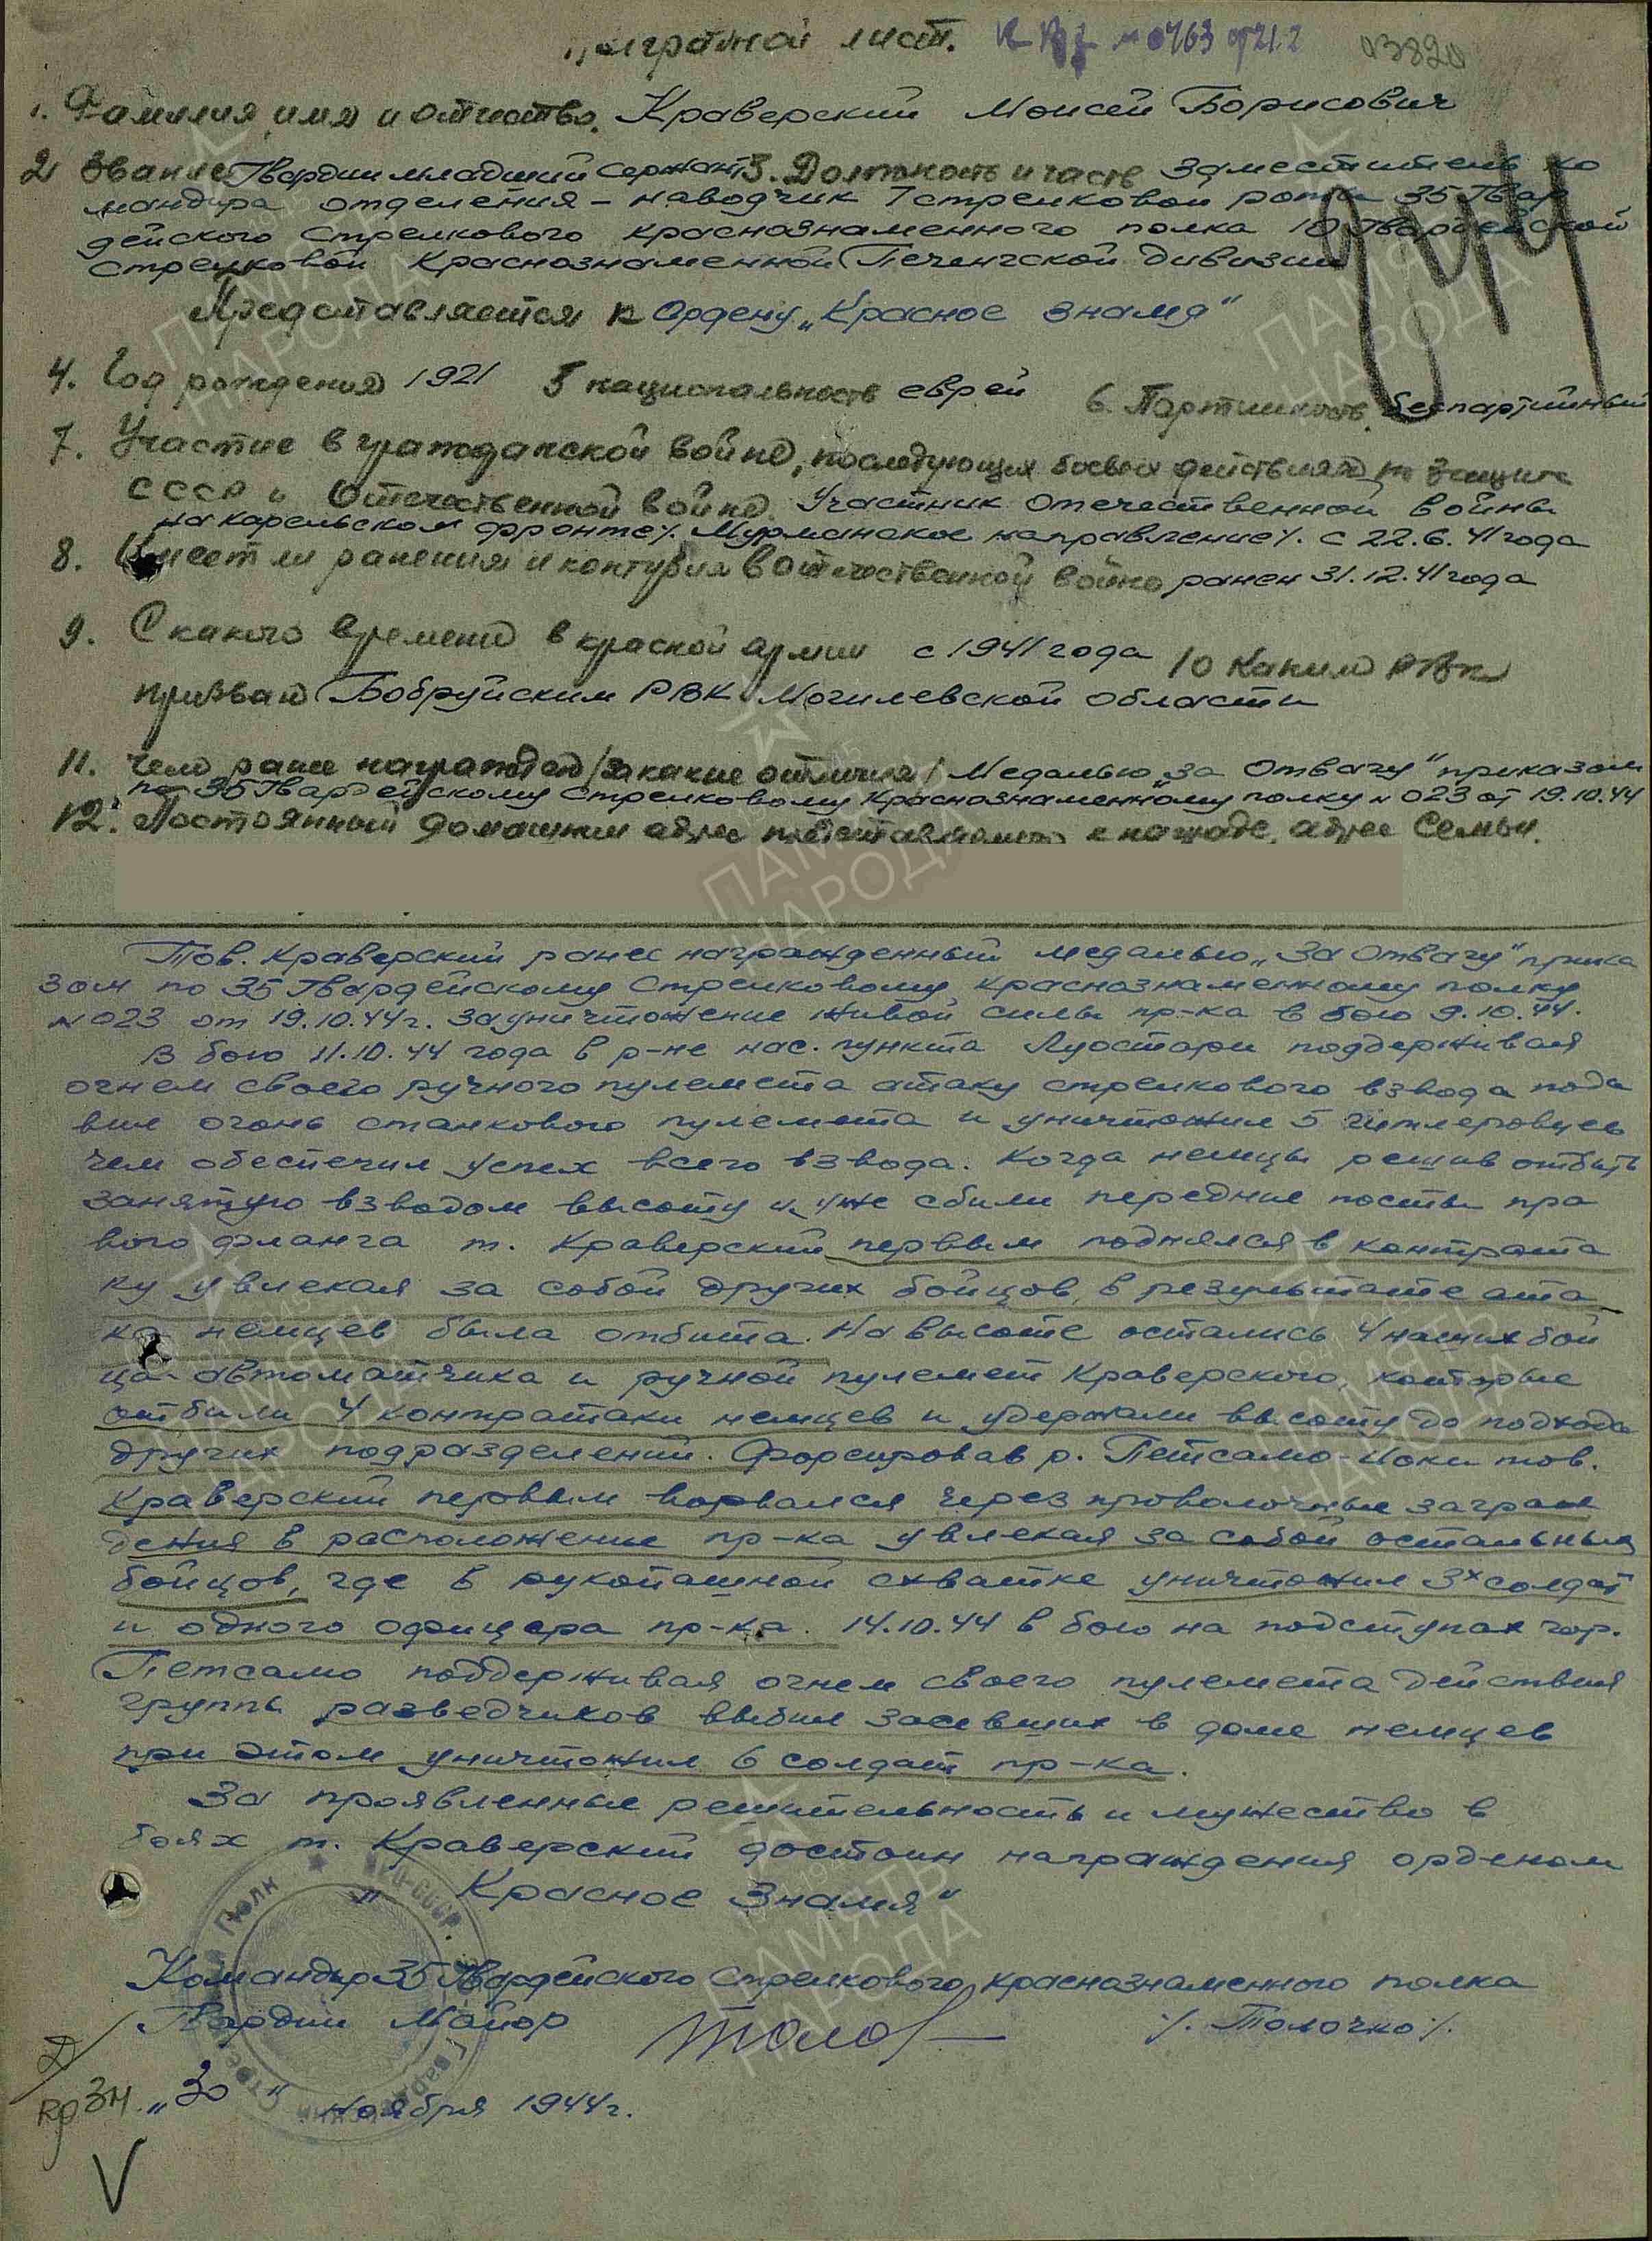 Наградной лист. 0463 03820
1. Фамилия, имя и отчество. Краверский Моисей Борисович
2 Звание Гвардии младший сержант 3. Должность и часть заместитель ко
мандира отделения – наводчик 7 стрелковой роты 35 Гвар
дейского стрелкового краснознаменного полка 10 Гвардейской
стрелковой Краснознаменной Печенгской дивизии
Представляется к Ордену „Красное Знамя"
4. Год рождения 1921 5 национальность еврей 6. Партийность. беспартийный
7. Участие в гражданской войне, последующих боевых действиях по защите
СССР и Отечественной войне. Участник отечественной войны
на карельском фронте /. Мурманское направление /. с 22.6.41 года
8. Имеет ли ранения и контузия в отечественной войне ранен 31.12.41 года
9. С какого времени в красной армии с 1941 года 10 Каким РВК
призван Бобруйским РВК Могилевской области
11. Чем ранее награжден /за какие отличия/ Медалью „за Отвагу" приказом
по 35 Гвардейскому стрелковому Краснознаменному полку № 023 от 19.10.44
12. Постоянный домашний адрес представляемого к награде, адрес семьи.
Тов. Краверский ранее награжденный медалью „За Отвагу" прика
зом по 35 Гвардейскому стрелковому краснознаменному полку
№ 023 от 19.10.44 г. за уничтожение живой силы пр-ка в бою 9.10.44.
В бою 11.10.44 года в р-не нас. пункта Луостари поддерживая
огнем своего ручного пулемета атаку стрелкового взвода пода
вил огонь станкового пулемета и уничтожил 5 гитлеровцев
чем обеспечил успех всего взвода. Когда немцы решив отбить
занятую взводом высоту и уже сбили передние посты пра
вого фланга т. Краверский первым поднялся в контрата
ку увлекая за собой других бойцов, в результате ата
ка немцев была отбита. На высоте остались 4 наших бой
ца-автоматчика и ручной пулемет Краверского, которые
отбили 4 контратаки немцев и удержали высоту до подхода
других подразделений. Форсировав р. Петсамо-Иоки тов.
Краверский первым ворвался через проволочные заграж
дения в расположение пр-ка увлекая за собой остальных
бойцов, где в рукопашной схватке уничтожил 3х солдат
и одного офицера пр-ка. 14.10.44 в бою на подступах гор.
Петсамо поддерживая огнем своего пулемета действия
группы разведчиков выбил засевших в доме немцев
при этом уничтожил 6 солдат пр-ка.
За проявленные решительность и мужество в
боях т. Краверский достоин награждения орденом
„Красное Знамя"
Командир 35 Гвардейского стрелкового краснознаменного полка
Гвардии Майор /. Толочко /.
Кр Зн „30" ноября 1944 г.
ПАМЯТЬ НАРОДА